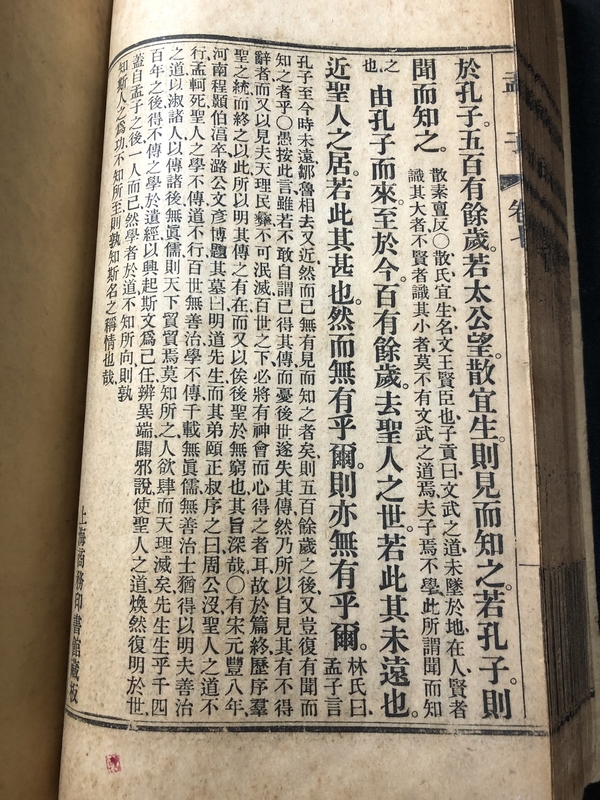 孟子 卷七
於孔子。五百有餘歲。若太公望。散宜生。則見而知之。若孔子。則
聞而知之。
散素亶反○散氏宜生名文王賢臣也子貢曰文武之道未墜於地在人賢者
識其大者不賢者識其小者莫不有文武之道焉夫子焉不學此所謂聞而知
之
也
由孔子而來。至於今。百有餘歲。去聖人之世。若此其未遠也。
近聖人之居。若此其甚也。然而無有乎爾。則亦無有乎爾。
林氏曰
孟子言
孔子至今時未遠、鄒魯相去又近、然而已無有見而知之者矣、則五百餘歲之後、又豈復有聞而
知之者乎○愚按此言、雖若不敢自謂已得其傳、而憂後世遂失其傳、然乃所以自見其有不得
辭者、而又以見夫天理民彝不可泯滅、百世之下、必將有神會而心得之者耳、故於篇終、歷序羣
聖之統、而終之以此、所以明其傳之有在、而又以俟後聖於無窮也、其旨深哉○有宋元豐八年、
河南程顥伯淳卒、潞公文彥博題其墓曰明道先生、而其弟頤正叔序之曰、周公沒、聖人之道不
行、孟軻死、聖人之學不傳、道不行、百世無善治、學不傳、千載無眞儒、無善治、士猶得以明夫善治
之道、以淑諸人、以傳諸後、無眞儒、則天下貿貿焉莫知所之、人欲肆而天理滅矣、先生生乎千四
百年之後、得不傳之學於遺經、以興起斯文爲己任、辨異端、闢邪說、使聖人之道、煥然復明於世、
蓋自孟子之後、一人而已、然學者於道不知所向、則孰
知斯人之爲功、不知所至、則孰知斯名之稱情也哉、
上海商務印書館藏板